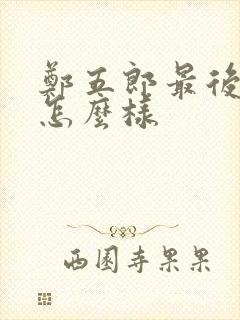 鄭五郎最後
怎麼樣
西園寺果果